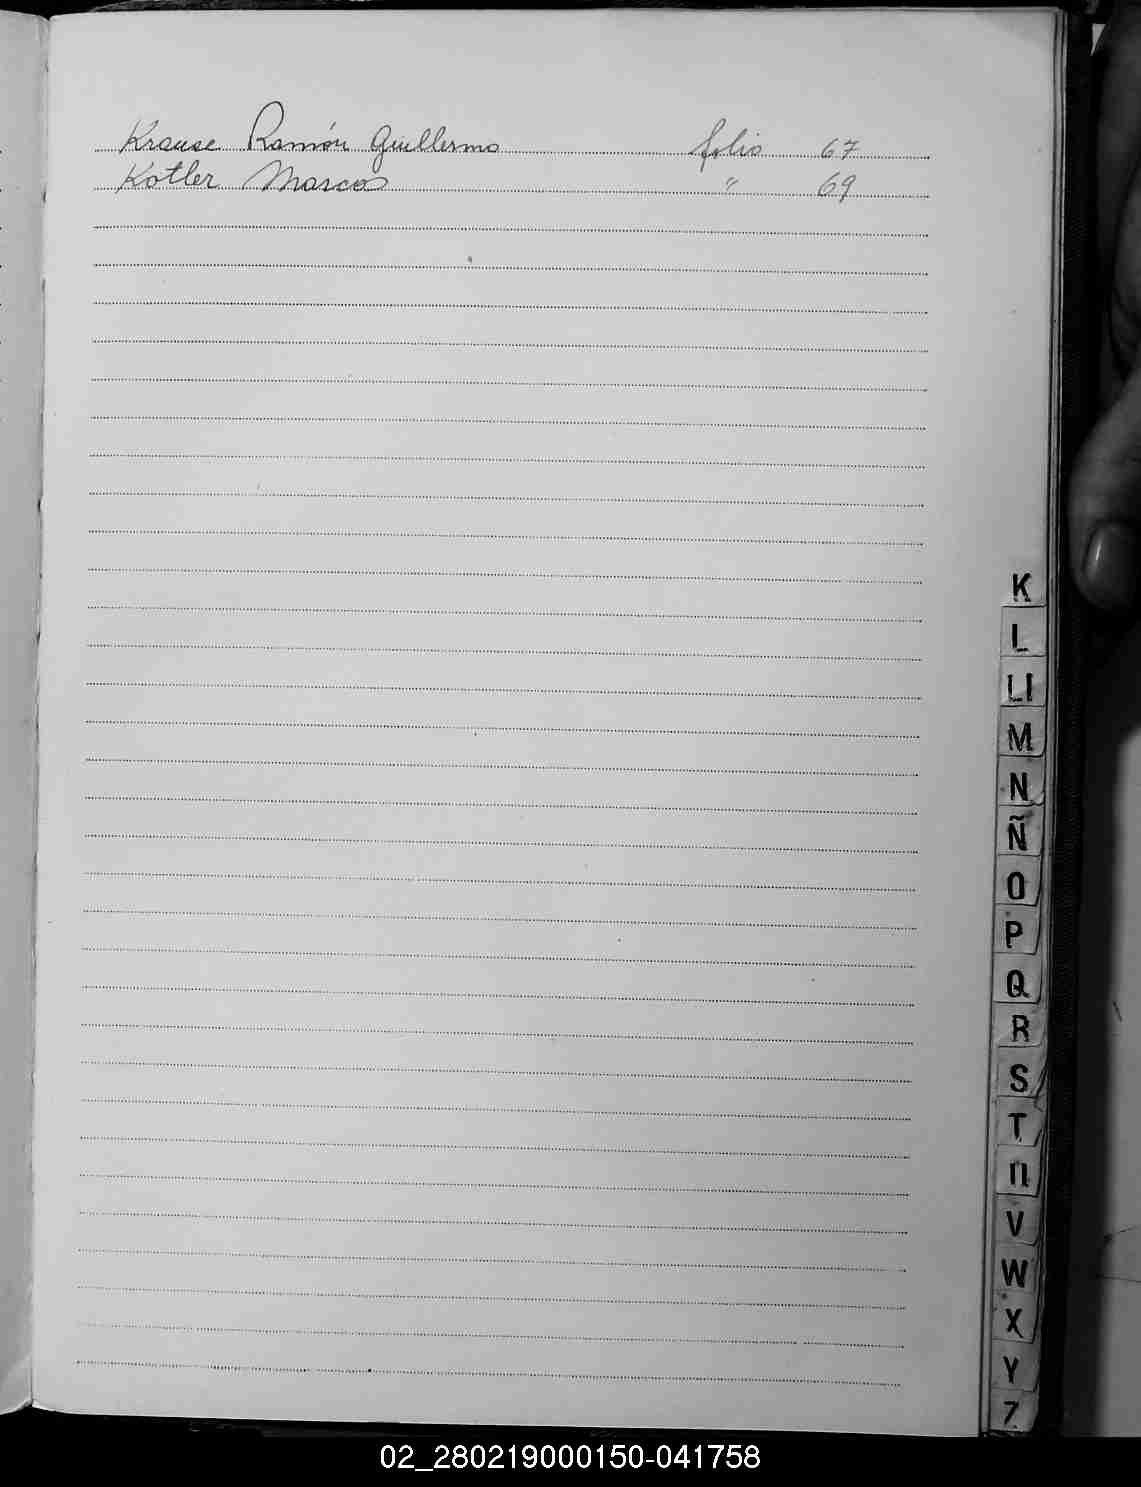 Krause Ramón Guillermo folio 67
Kotler Marcos " 69
K
L
Ll
M
N
Ñ
O
P
Q
R
S
T
U
V
W
X
Y
Z
02_280219000150-041758